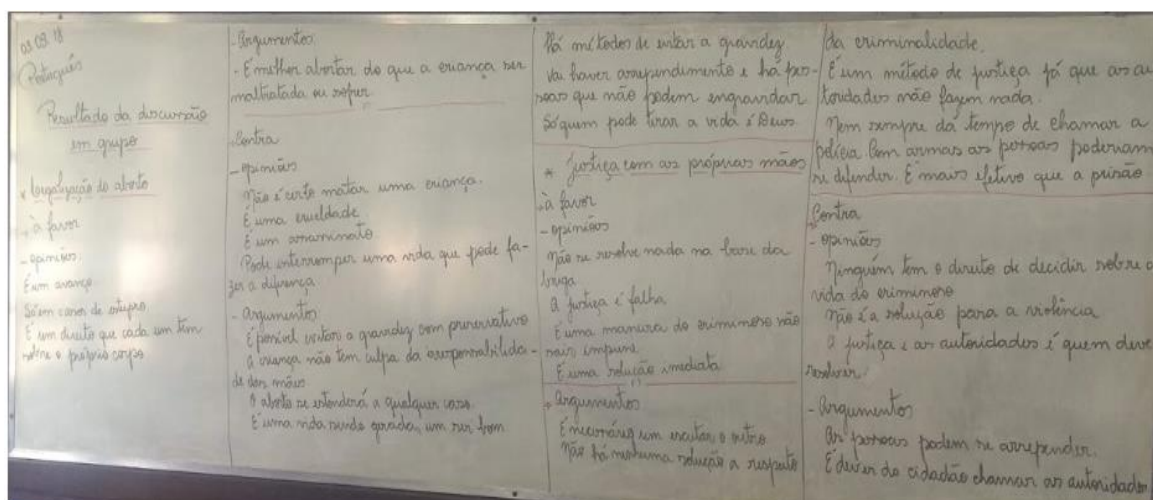 03.09.18
Português
Resultado da discursão
em grupo
* Legalização do aborto
à favor
- opiniões.
É um avanço
Só em casos de estupro
É um direito que cada um tem
sobre o próprio corpo
- Argumentos
- É melhor abortar do que a criança ser
maltratada ou sofrer.
Contra
- opiniões
Não é certo matar uma criança.
É uma crueldade.
É um assassinato.
Pode interromper uma vida que pode fa-
zer a diferença
- Argumentos
É possível evitar a gravidez com preservativo
A criança não tem culpa da irresponsabilida-
de das mães
O aborto se estenderá a qualquer caso.
É uma vida sendo gerada, um ser bom
Há métodos de evitar a gravidez
Vai haver arrependimento e há pes-
soas que não podem engravidar
Só quem pode tirar a vida é Deus
* Justiça com as próprias mãos
à favor
- opiniões
Não se resolve nada na base da
briga
A justiça é falha
É uma maneira do criminoso não
sair impune
É uma solução imediata
* Argumentos
É necessário um escutar o outro
Não há nenhuma solução a respeito
da criminalidade.
É um método de justiça já que as au
toridades não fazem nada.
Nem sempre dá tempo de chamar a
polícia Com armas as pessoas poderiam
se defender. É mais efetivo que a prisão
Contra
- opiniões
Ninguém tem o direito de decidir sobre a
vida do criminoso
Não é a solução para a violência
A justiça e as autoridades é quem deve
resolver.
- Argumentos
As pessoas podem se arrepender.
É dever do cidadão chamar as autoridades